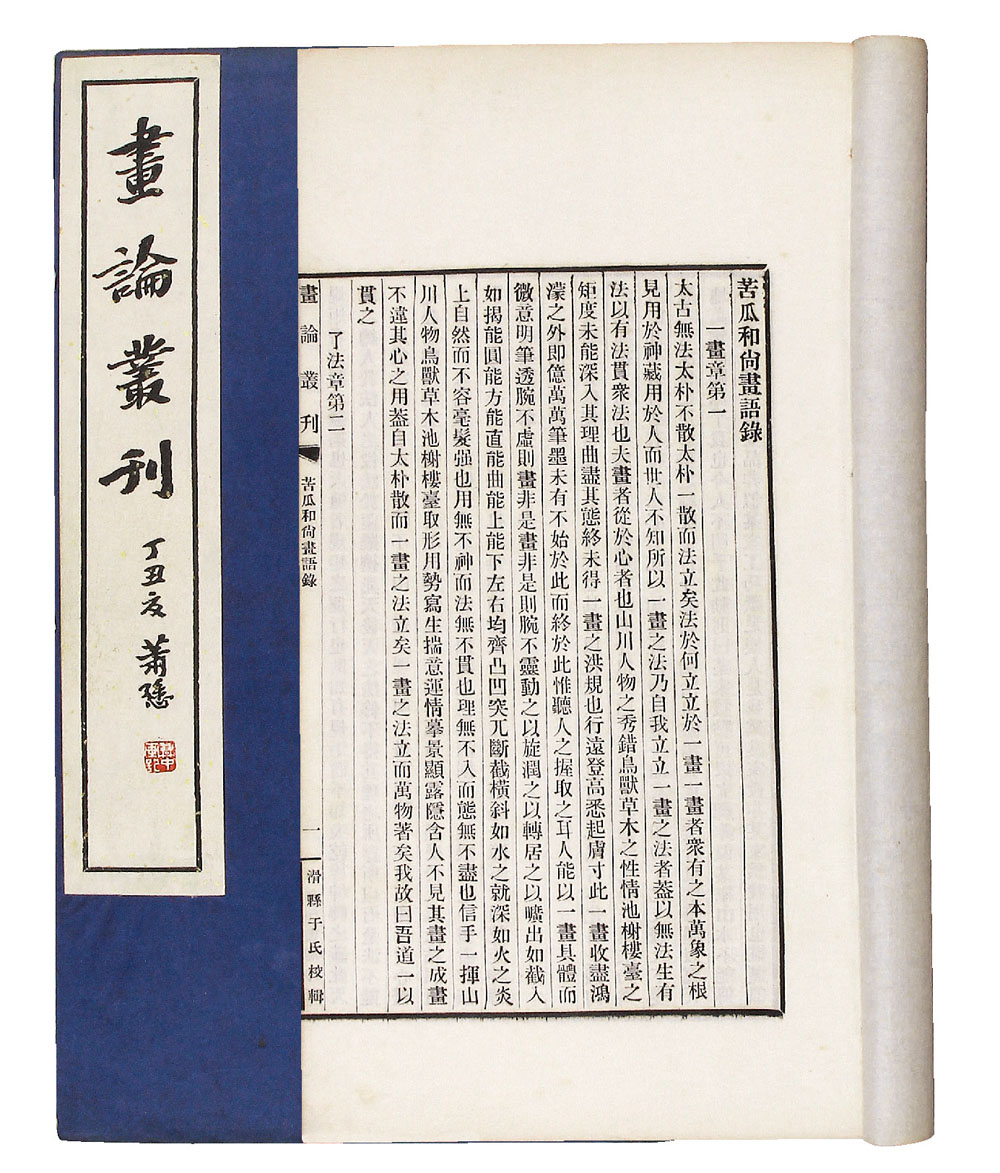 畫論叢刊
丁丑夏 蕭愻
苦瓜和尚畫語錄
一畫章第一
太古無法太朴不散太朴一散而法立矣法於何立立於一畫一畫者衆有之本萬象之根
見用於神藏用於人而世人不知所以一畫之法乃自我立立一畫之法者葢以無法生有
法以有法貫衆法也夫畫者從於心者也山川人物之秀錯鳥獸草木之性情池榭樓臺之
矩度未能深入其理曲盡其態終未得一畫之洪規也行遠登高悉起膚寸此一畫收盡鴻
濛之外即億萬萬筆墨未有不始於此而終於此惟聽人之握取之耳人能以一畫具體而
微意明筆透腕不虛則畫非是畫非是則腕不靈動之以旋潤之以轉居之以曠出如截入
如揭能圓能方能直能曲能上能下左右均齊凸凹突兀斷截橫斜如水之就深如火之炎
上自然而不容毫髮强也用無不神而法無不貫也理無不入而態無不盡也信手一揮山
川人物鳥獸草木池榭樓臺取形用勢寫生揣意運情摹景顯露隱含人不見其畫之成畫
不違其心之用葢自太朴散而一畫之法立矣一畫之法立而萬物著矣我故曰吾道一以
貫之
了法章第二
畫論叢刊 苦瓜和尚畫語錄 一 滑縣于氏校輯